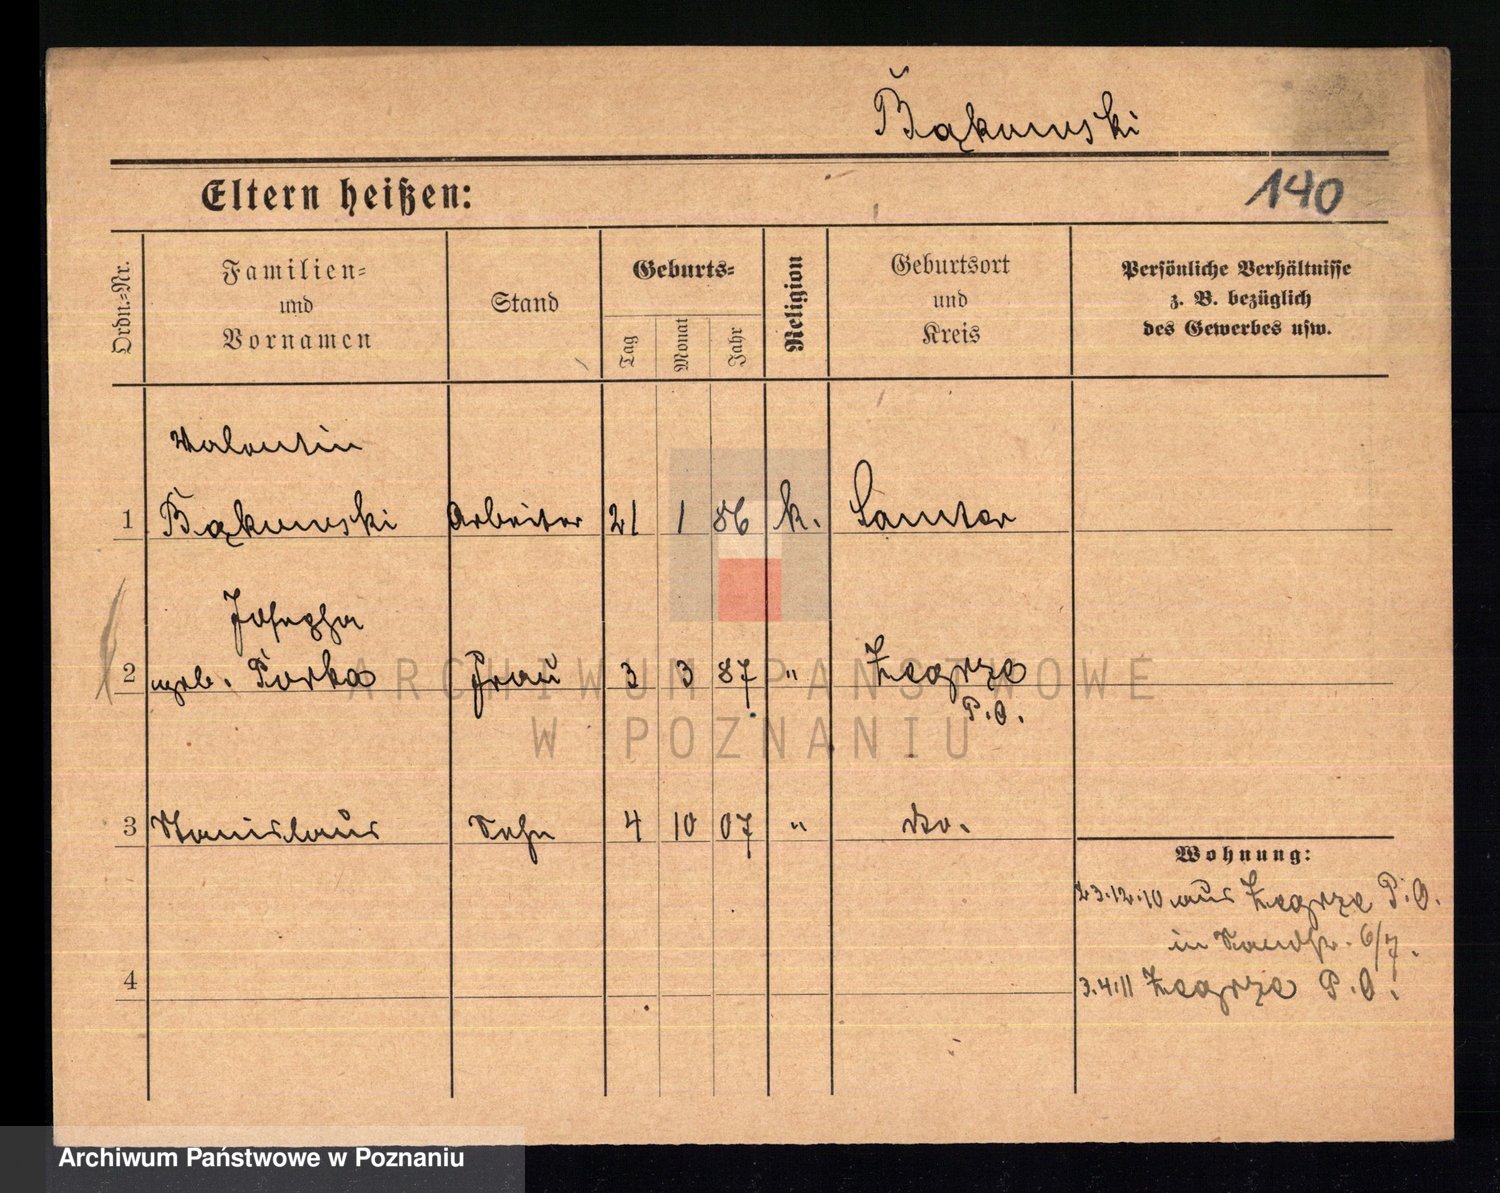 Bąkowski
Eltern heißen:
140
Ordn.-Nr.
Familien-
und
Vornamen
Stand
Geburts-
Tag
Monat
Jahr
Religion
Geburtsort
und
Kreis
Persönliche Verhältnisse
z. B. bezüglich
des Gewerbes usw.
Valentin
1 Bąkowski Arbeiter 21 1 86 k. Samter
Josepha
2 geb. Frau 3 3 87 " Zegrze
P.O.
3 Stanislaus Sohn 4 10 07 " do.
Wohnung:
23.12.10 aus Zegrze P.O.
in Sandstr. 6/7.
4
3.4.11 Zegrze P.O.
ARCHIWUM PAŃSTWOWE
W POZNANIU
Archiwum Państwowe w Poznaniu